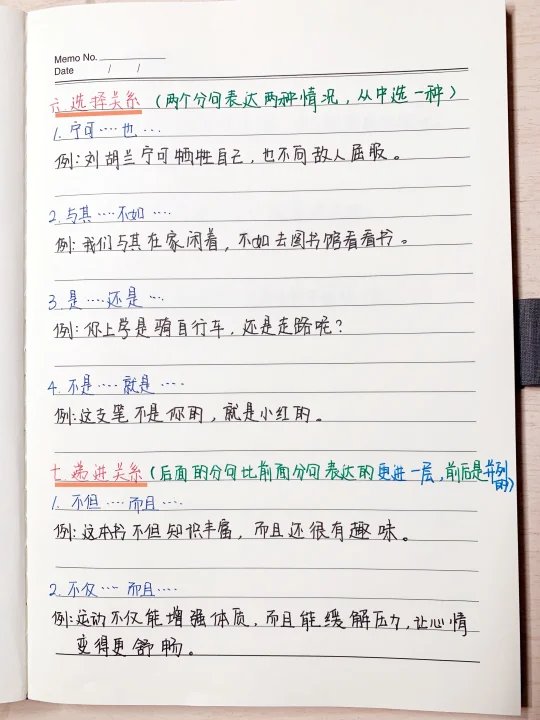 Memo No.
Date / /
六.选择关系（两个分句表达两种情况，从中选一种）
1.宁可····也···
例:刘胡兰宁可牺牲自己，也不向敌人屈服。
2.与其····不如····
例:我们与其在家闲着，不如去图书馆看看书。
3.是····还是···
例:你上学是骑自行车，还是走路呢?
4.不是····就是····
例:这支笔不是你的，就是小红的。
七.递进关系(后面的分句比前面分句表达的更进一层,前后是并列的)
1.不但····而且····
例:这本书不但知识丰富，而且还很有趣味。
2.不仅····而且····
例:运动不仅能增强体质,而且能缓解压力,让心情
变得更舒畅。